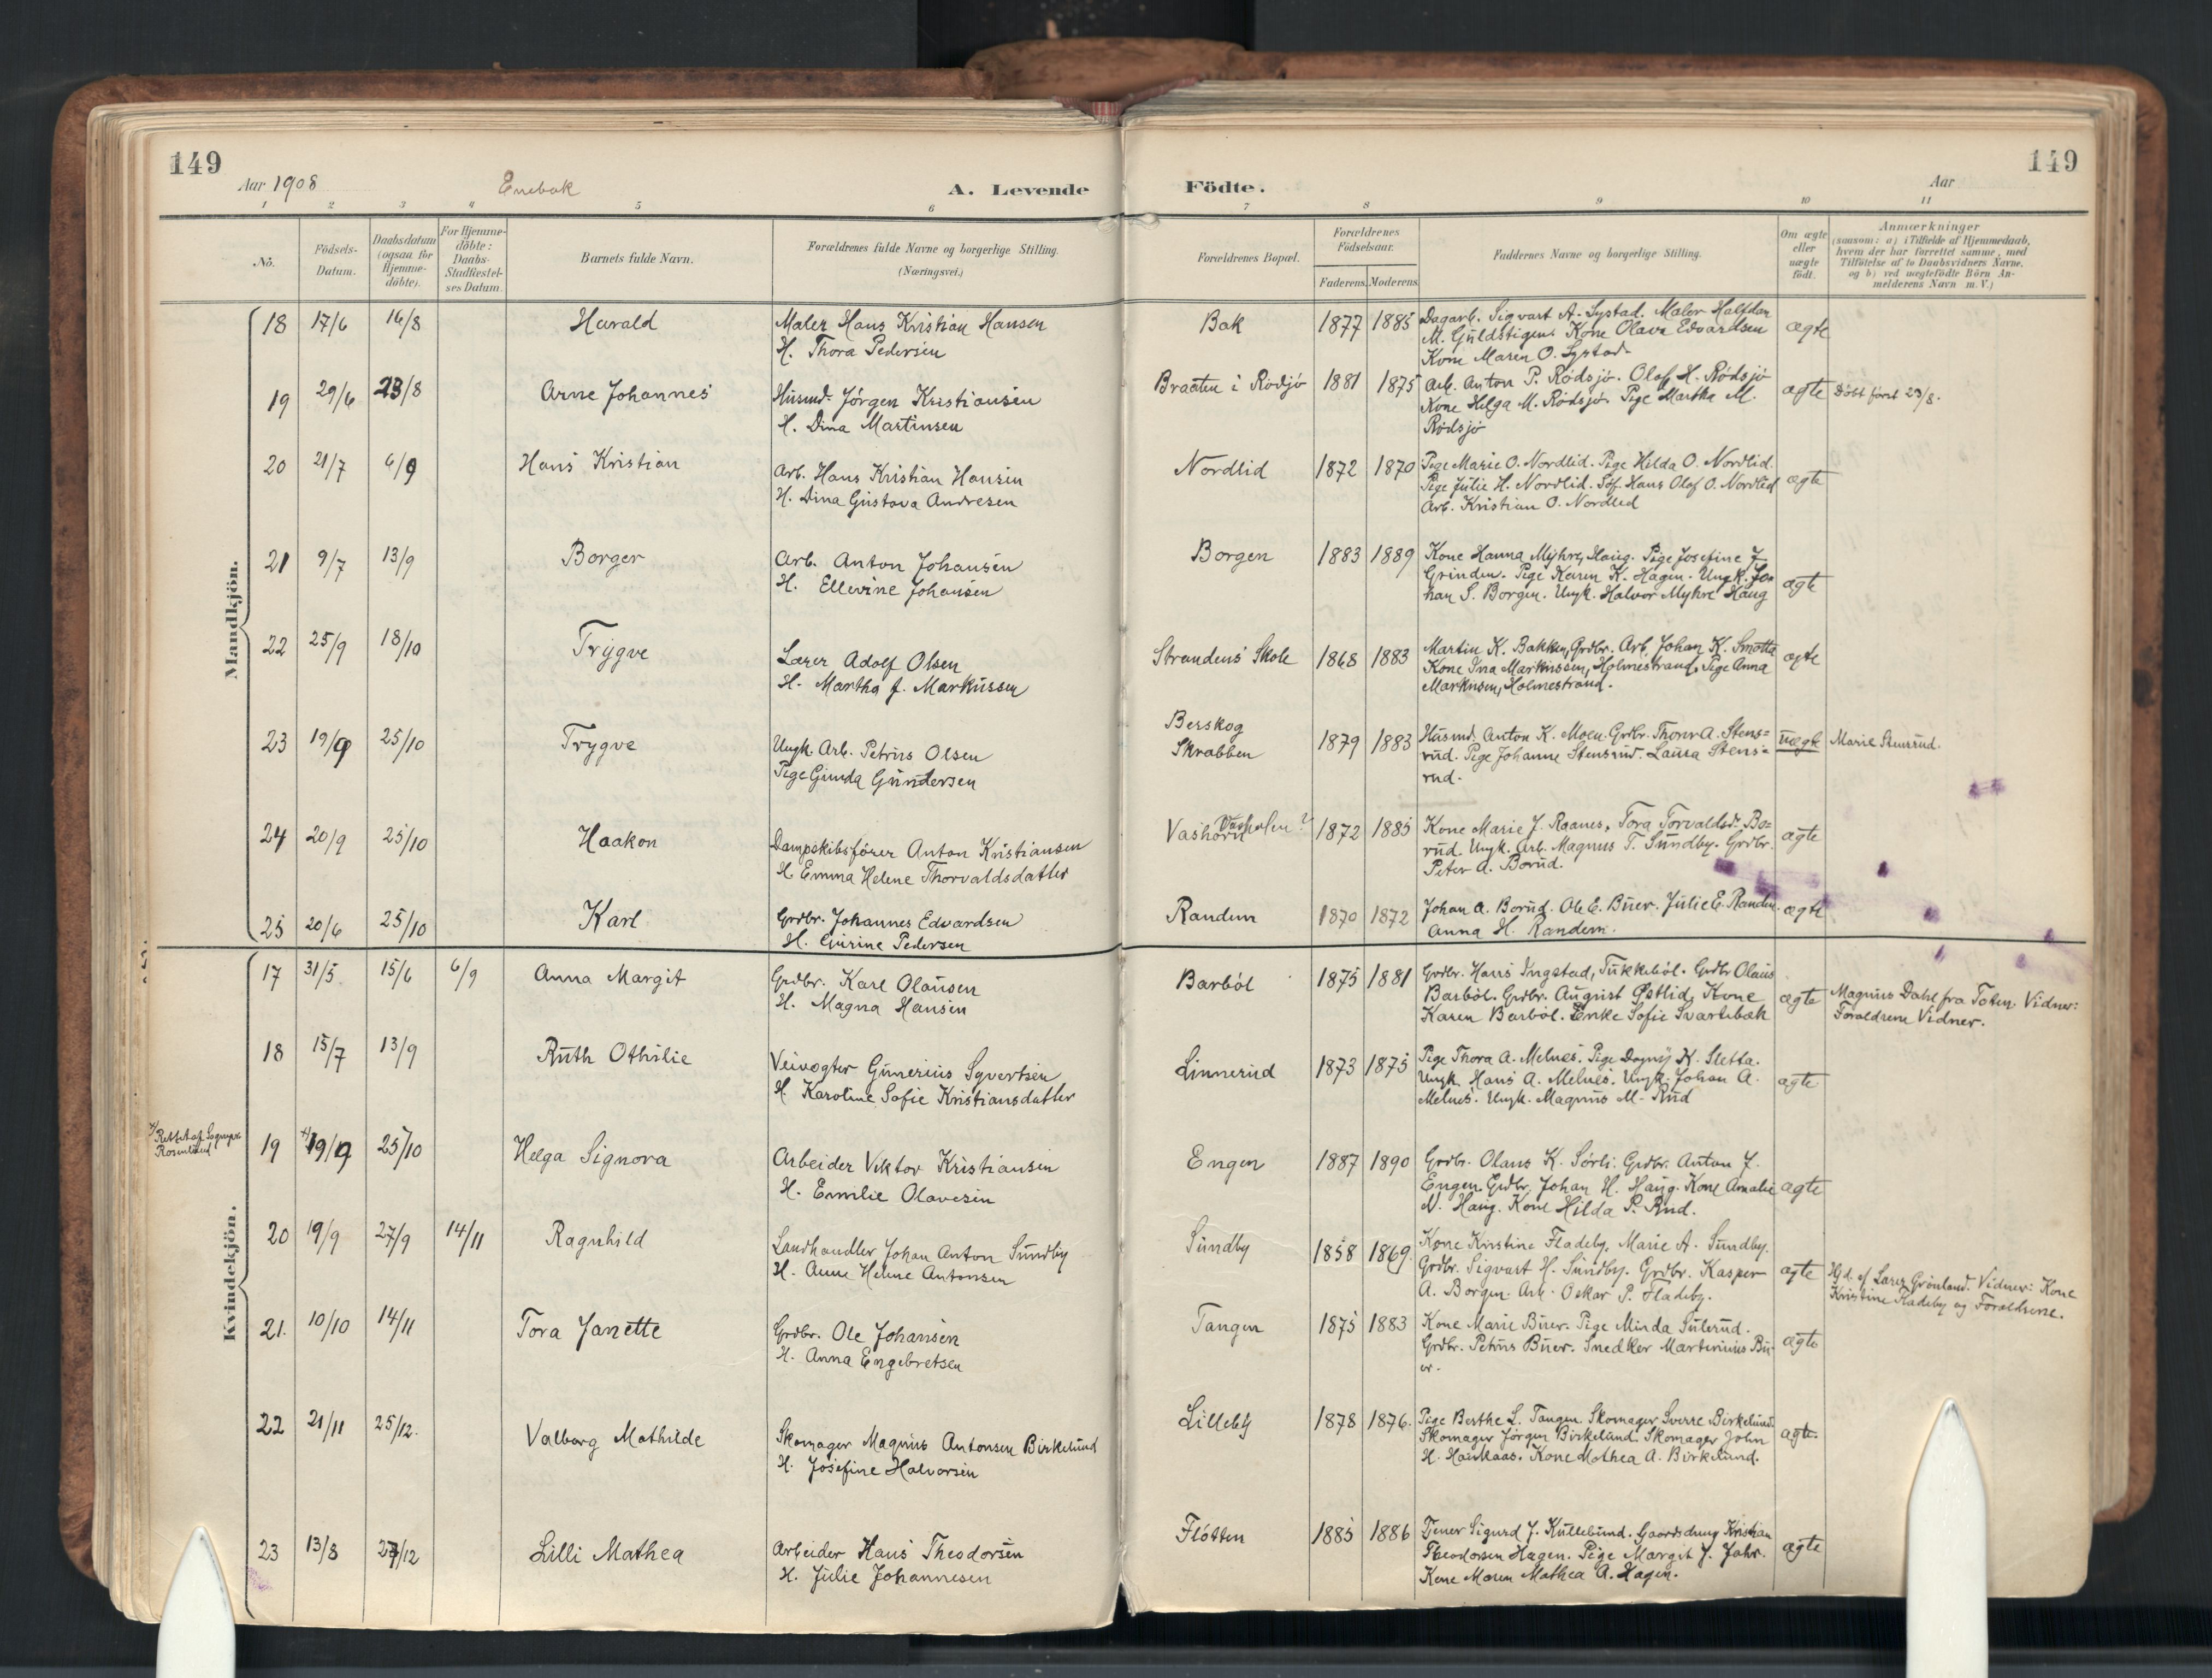 149
149
Aar 1908
Enebak
A. Levende
Födte.
Aar
1 2 3 4 5 6 7 8 9 10 11
No.
Födsels-
Datum.
Daabsdatum
(ogsaa for
Hjemme-
döbte).
For Hjemme-
döbte:
Daabs-
Stadfæstel-
ses Datum.
Barnets fulde Navn.
Forældrenes fulde Navne og borgerlige Stilling.
(Næringsvei.)
Forældrenes Bopæl.
Forældrenes
Födselsaar.
Faderens. Moderens.
Faddernes Navne og borgerlige Stilling.
Om ægte
eller
uægte
födt.
Anmærkninger
(saasom: a) i Tilfælde af Hjemmedaab,
hvem der har forrettet samme, med
Tilföielse af to Daabsvidners Navne.
og b) ved uægtefödte Börn An-
melderens Navn m. V.)
Mandkjön.
18 17/6 16/8 Harald
Maler Hans Kristian Hansen
H. Thora Pedersen
Bak 1877 1885
Dagarb. Sigvart A. Systad. Maler Halfdan
M. Guldstigen. Kone Olava Edvardsen
Kone Maren O. Systad.
ægte
19 29/6 23/8 Arne Johannes
Husmd. Jörgen Kristiansen
H. Dina Martinsen
Braaten i Rødsjø 1881 1875
Arb. Anton P. Rødsjø. Olaf H. Rødsjø
Kone Helga M. Rødsjø. Pige Martha M.
Rødsjø
ægte
Döbt först 23/8.
20 21/7 6/9 Hans Kristian
Arb. Hans Kristian Hansen
H. Dina Gustava Andresen
Nordlid 1872 1870
Pige Marie O. Nordlid. Pige Hilda O. Nordlid.
Pige Julie H. Nordlid. Söf. Hans Olaf O. Nordlid
Arb. Kristian O. Nordlid
ægte
21 9/7 13/9 Borger
Arb. Anton Johansen
H. Ellevine Johansen
Borgen 1883 1889
Kone Hanna Myhre, Haug. Pige Josefine J.
Grinden. Pige Karen K. Hagen. Ungk. Jo-
han S. Borgen. Ungk. Halvor Myhre Haug
ægte
22 25/9 18/10 Trygve
Lærer Adolf Olsen
H. Martha J. Markussen
Strandens Skole 1868 1883
Martin K. Bakken, Grdbr. Arb. Johan K. Smotte
Kone Ina Markussen, Holmestrand, Pige Anna
Markusen, Holmestrand.
ægte
23 19/9 25/10 Trygve
Ungk. Arb. Petrus Olsen
Pige Gunda Gundersen
Berskog
Skrabben 1879 1883
Husmd. Anton K. Moen. Grdbr. Thorv. A. Stens-
rud. Pige Johanne Stensrud. Laura Stens-
rud.
uægte
Marie Stensrud.
24 20/9 25/10 Haakon
Dampskibsförer Anton Kristiansen
H. Emma Helene Thorvaldsdatter
Vashorn 1872 1885
Kone Marie J. Raanes. Tora Torvaldsd. Bo-
rud. Ungk. Arb. Magnus T. Sundby. Grdbr.
Peter A. Borud.
ægte
25 20/6 25/10 Karl
Grdbr. Johannes Edvardsen
H. Gurine Pedersen
Randem 1870 1872
Johan A. Borud. Ole E. Buer. Julie E. Randem.
Anna H. Randem.
ægte
Kvindekjön.
17 31/5 15/6 6/9 Anna Margit
Grdbr. Karl Olausen
H. Magna Hansen
Barböl 1875 1881
Grdbr. Hans Ingstad, Tukkeböl. Grdbr Olaus
Barböl. Grdbr. August Østlid, Kone
Karen Barböl. Enke Sofie Svartebæk
ægte
Magnus Dahl fra Toten. Vidner:
Forældrene Vidner.
18 15/7 13/9 Ruth Othilie
Veivogter Gunerius Syvertsen
H. Karoline Sofie Kristiansdatter
Linnerud 1873 1875
Pige Thora A. Melnes. Pige Dagny K. Sletta.
Ungk. Hans A. Melnes. Ungk. Johan A.
Melnes. Ungk. Magnus M. Rud
ægte
19 19/9 25/10 Helga Signora
Arbeider Viktor Kristiansen
H. Emilie Olavesen
Engen 1887 1890
Grdbr. Olaus K. Sörli. Grdbr. Anton J.
Engen. Grdbr. Johan H. Haug. Kone Amalie
N. Haug. Kone Hilda P. Rud.
ægte
20 19/9 27/9 14/11 Ragnhild
Landhandler Johan Anton Sundby
H. Anne Helene Antonsen
Sundby 1858 1869.
Kone Kristine Fladeby. Marie A. Sundby.
Grdbr. Sigvart H. Sundby. Grdbr. Kasper
A. Borgen. Arb. Oskar P. Fladeby.
ægte
Hjd. af Lærer Grönland. Vidner: Kone
Kristine Fladeby og Forældrene.
21. 10/10 14/11 Tora Janette
Grdbr. Ole Johansen
H. Anna Engebretsen
Tangen 1875 1883
Kone Marie Buer. Pige Minda Sulerud.
Grdbr. Petrus Buer. Snedker Martinius Bu-
er.
ægte
22 21/11 25/12. Valborg Mathilde
Skomager Magnus Antonsen Birkelund
H. Josefine Halvorsen
Lilleby 1878 1876.
Pige Berthe L. Tangen. Skomager Sverre Birkelund.
Skomager Jörgen Birkelund. Skomager John
H. Haukaas. Kone Mathea A. Birkelund.
ægte.
23 13/8 27/12 Lilli Mathea
Arbeider Hans Theodorsen
H. Julie Johannesen
Flötten 1885 1886
Tjener Sigurd J. Kullebund. Gaardsdreng Kristian
Theodorsen Hagen. Pige Margit J. Jahr.
Kone Maren Mathea A. Hagen.
ægte